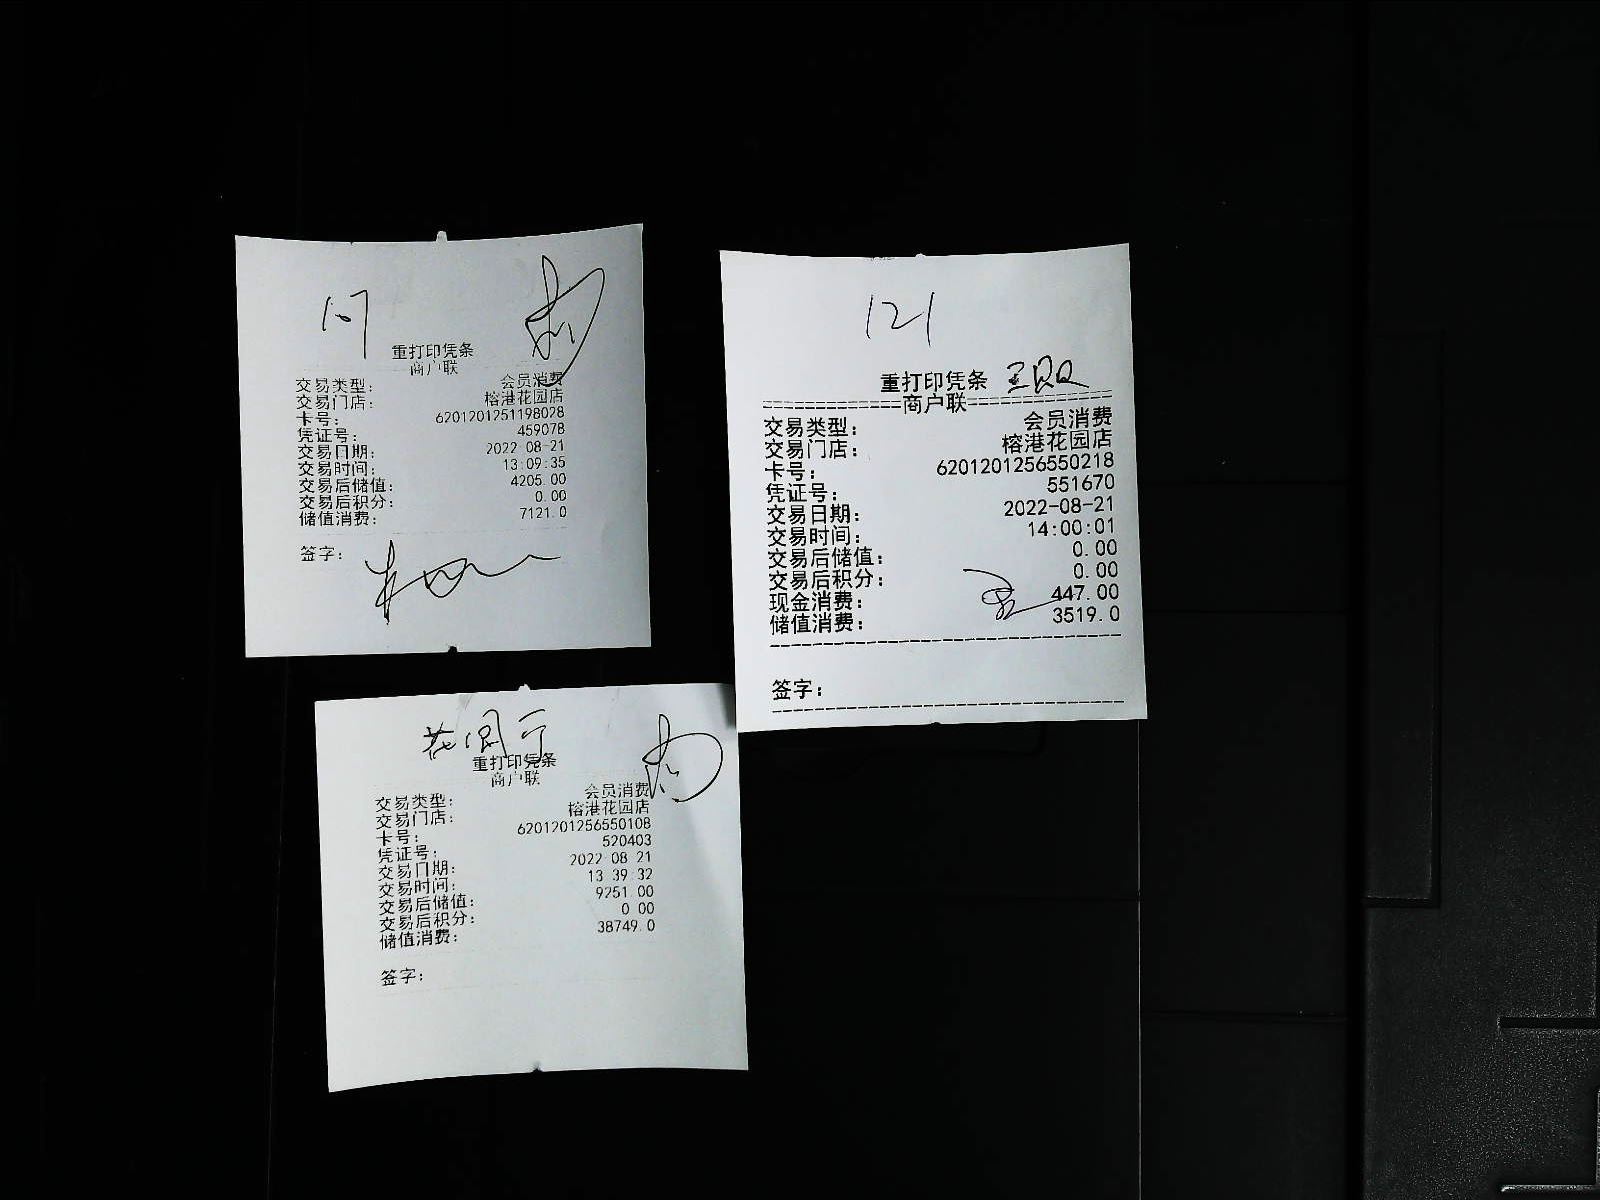 107
重打印凭条
商户联
交易类型： 会员消费
交易门店： 榕港花园店
卡号： 6201201251198028
凭证号： 459078
交易日期： 2022-08-21
交易时间： 13:09:35
交易后储值： 4205.00
交易后积分： 0.00
储值消费： 7121.0
签字：
121
重打印凭条
==============商户联==============
交易类型： 会员消费
交易门店： 榕港花园店
卡号： 6201201256550218
凭证号： 551670
交易日期： 2022-08-21
交易时间： 14:00:01
交易后储值： 0.00
交易后积分： 0.00
现金消费： 447.00
储值消费： 3519.0
签字：
重打印凭条
商户联
交易类型： 会员消费
交易门店： 榕港花园店
卡号： 6201201256550108
凭证号： 520403
交易日期： 2022 08 21
交易时间： 13 39 32
交易后储值： 9251.00
交易后积分： 0 00
储值消费： 38749.0
签字：